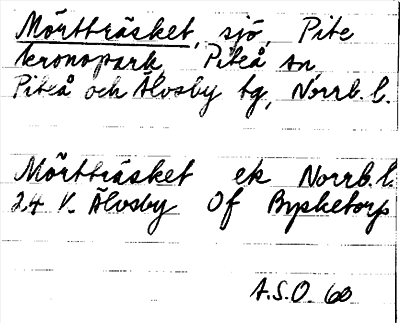 Mörtträsket, sjö, Pite
kronopark, Piteå sn,
Piteå och Älvsby tg, Norrb. l.
Mörtträsket ek Norrb. l.
24 V. Älvsby Of Bysketorp
A.S.O. 60